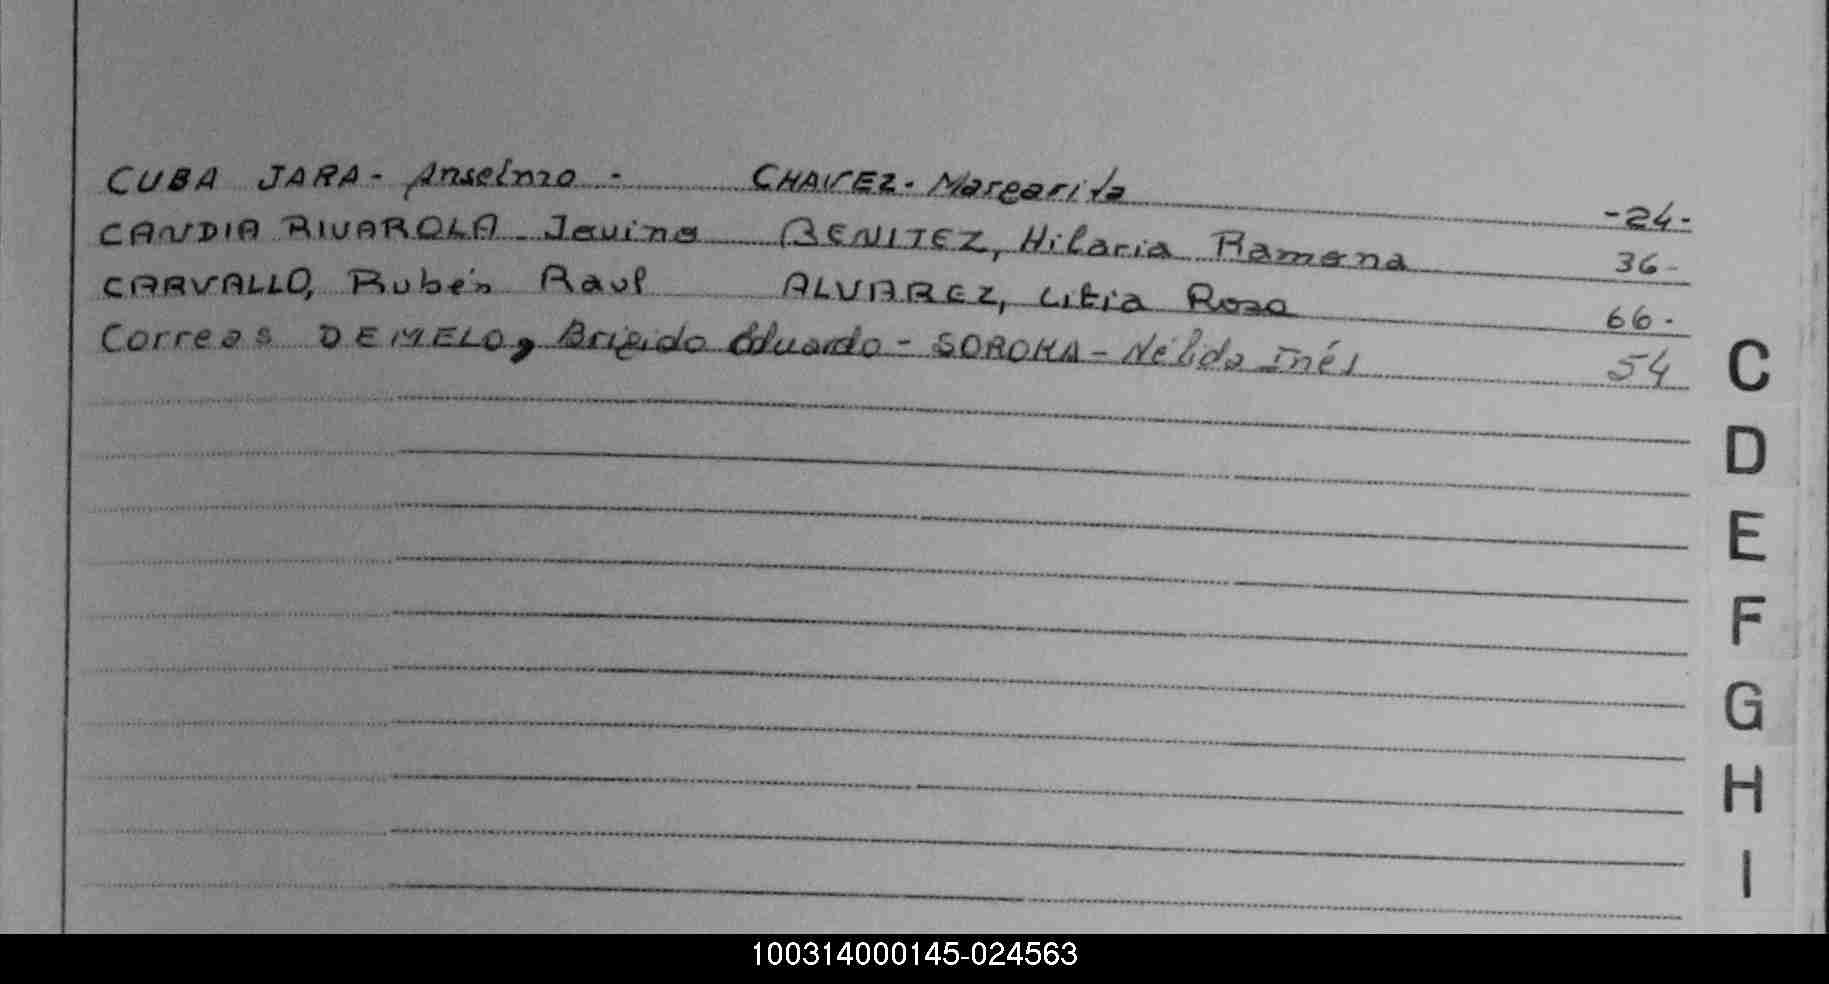 CUBA JARA - Anselmo - CHAVEZ - Margarita -24-
CANDIA RIVAROLA - Jovino BENITEZ, Hilaria Ramona 36-
CARVALLO, Rubén Raul ALVAREZ, Litia Rosa 66.
Correas DEMELO, Brigido Eduardo - SOROKA - Nélida Inés 54
C
D
E
F
G
H
I
100314000145-024563